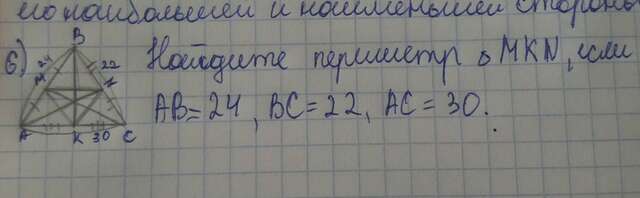 наибольшей и наименьшей стороны
6)
B
24
22
M
A
K
30
C
Найдите периметр Δ MKN, если
AB = 24, BC = 22, AC = 30.